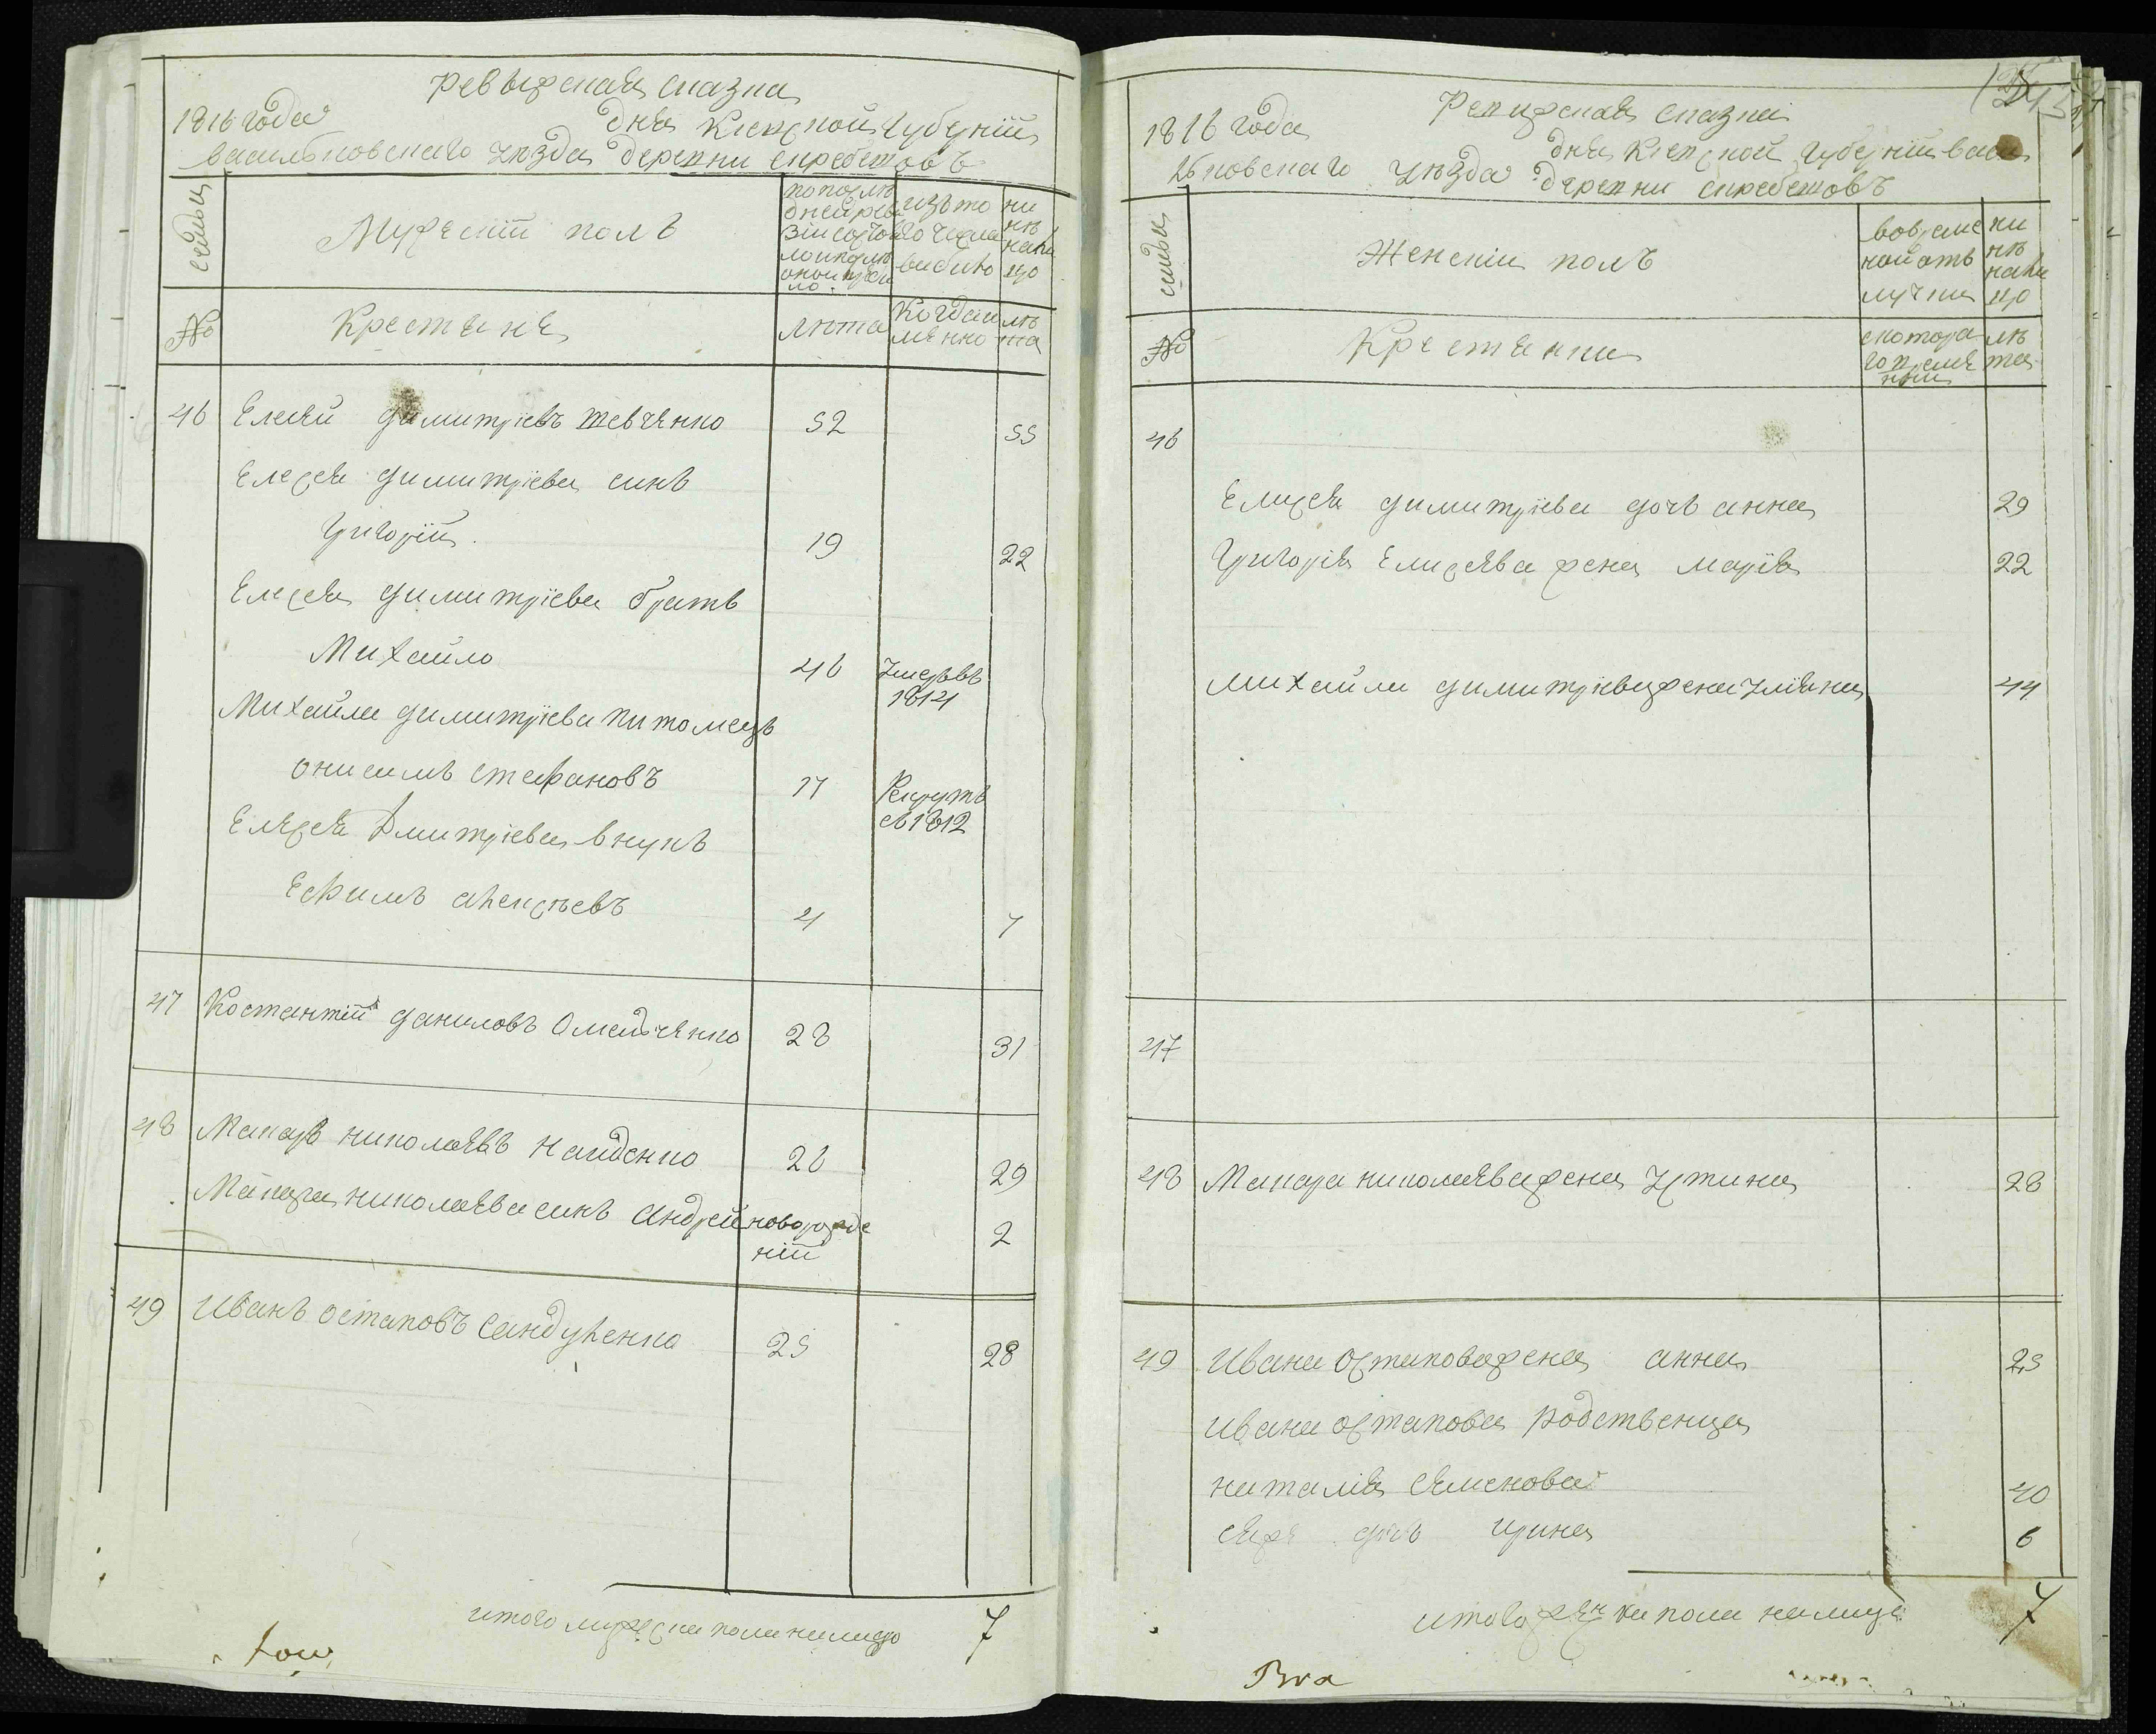 Ревызская сказка
1816 года дня Киевской Губернїи
васильковскаго уезда деревни скребетовъ
семьи
Мужескїй полъ
по послѣ
дней реви
зїи состоя
ло и послѣ
оной прибы
ло
изъ то
го числа
выбыло
ни
нѣ
нали
цо
№
Крестяне
лѣта
Когда и
мянно
лѣ
та
46 Елисей димитрїевъ шевченко 52 55
Елисея димитрїева синъ
Григорїй 19 22
Елисея димитрїева братъ
Михайло 46 Умерѣвъ
1814
Михайла димитрїева питомецъ
онисимъ стефановъ 17 Рекрутъ
съ 1812
Елисея Дмитрїева внукъ
Ефимъ алексѣевъ 4 7
47 Костантїй даниловъ Омелъченко 28 31
48 Макаръ николаевъ Найденко 26 29
Макара николаева синъ Андрей новорожде
нїй 2
49 Иванъ остаповъ Сандуленко 25 28
итого мужеска пола налицо 7
Ревизская сказка
1816 года дня Киевской губернїи васи
льковскаго уезда деревни скребетовъ
семьи
Женскїи полъ
вовреме
ной отъ
лучки
ни
нѣ
нали
цо
№
Крестянки
скотора
го времѣ
ныи
лѣ
та
46
Елисея димитрїева дочь анна 29
Григорїя Елисеева жена марїя 22
михайли димитрїева жена улїяна 44
47
48 Макара николаева жена Устина 28
49 Ивана остапова жена анна 25
Ивана остапова родственица
наталїя Семенова 40
Еяже дочь ирина 6
итого женска пола налице 7